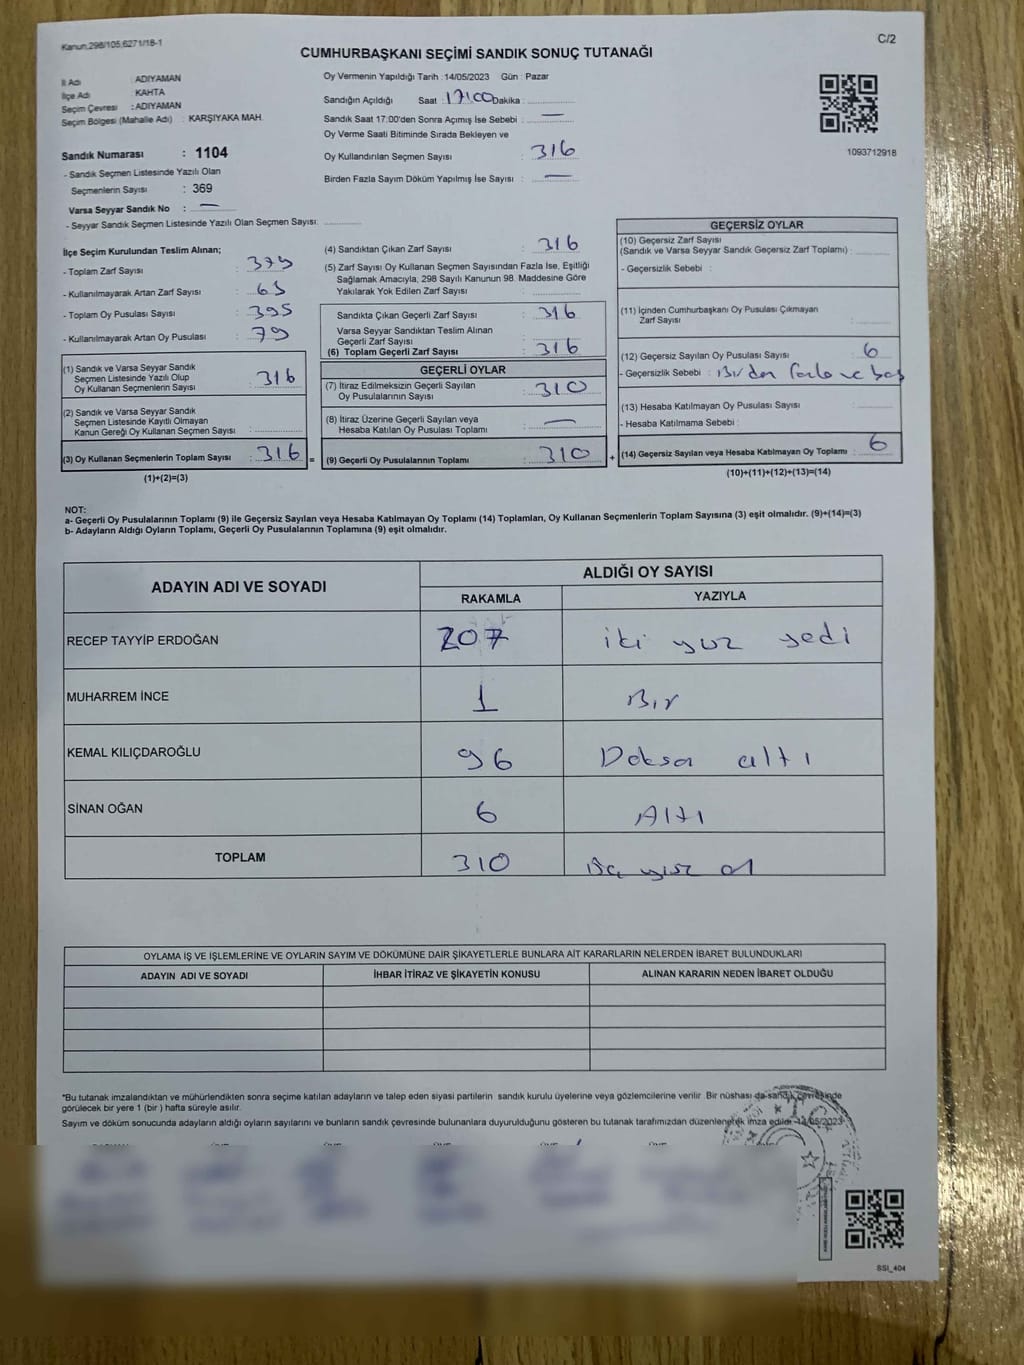 Kanun,298/105,6271/18-1
C/2
CUMHURBAŞKANI SEÇİMİ SANDIK SONUÇ TUTANAĞI
İl Adı : ADIYAMAN
İlçe Adı : KAHTA
Seçim Çevresi : ADIYAMAN
Seçim Bölgesi (Mahalle Adı) : KARŞIYAKA MAH.
Sandık Numarası : 1104
- Sandık Seçmen Listesinde Yazılı Olan
Seçmenlerin Sayısı : 369
Varsa Seyyar Sandık No : —
- Seyyar Sandık Seçmen Listesinde Yazılı Olan Seçmen Sayısı:
Oy Vermenin Yapıldığı Tarih : 14/05/2023 Gün : Pazar
Sandığın Açıldığı Saat : 17:00 Dakika :
Sandık Saat 17:00'den Sonra Açımış İse Sebebi : —
Oy Verme Saati Bitiminde Sırada Bekleyen ve
Oy Kullandırılan Seçmen Sayısı : 316
Birden Fazla Sayım Döküm Yapılmış İse Sayısı : —
1093712918
İlçe Seçim Kurulundan Teslim Alınan;
- Toplam Zarf Sayısı : 379
- Kullanılmayarak Artan Zarf Sayısı : 63
- Toplam Oy Pusulası Sayısı : 395
- Kullanılmayarak Artan Oy Pusulası : 79
(1) Sandık ve Varsa Seyyar Sandık
Seçmen Listesinde Yazılı Olup
Oy Kullanan Seçmenlerin Sayısı : 316
(2) Sandık ve Varsa Seyyar Sandık
Seçmen Listesinde Kayıtlı Olmayan
Kanun Gereği Oy Kullanan Seçmen Sayısı :
(3) Oy Kullanan Seçmenlerin Toplam Sayısı : 316
(1)+(2)=(3)
(4) Sandıktan Çıkan Zarf Sayısı : 316
(5) Zarf Sayısı Oy Kullanan Seçmen Sayısından Fazla İse, Eşitliği
Sağlamak Amacıyla, 298 Sayılı Kanunun 98. Maddesine Göre
Yakılarak Yok Edilen Zarf Sayısı :
Sandıkta Çıkan Geçerli Zarf Sayısı : 316
Varsa Seyyar Sandıktan Teslim Alınan
Geçerli Zarf Sayısı :
(6) Toplam Geçerli Zarf Sayısı : 316
GEÇERLİ OYLAR
(7) İtiraz Edilmeksizin Geçerli Sayılan
Oy Pusulalarının Sayısı : 310
(8) İtiraz Üzerine Geçerli Sayılan veya
Hesaba Katılan Oy Pusulası Toplamı : —
(9) Geçerli Oy Pusulalarının Toplamı : 310
GEÇERSİZ OYLAR
(10) Geçersiz Zarf Sayısı
(Sandık ve Varsa Seyyar Sandık Geçersiz Zarf Toplamı) :
- Geçersizlik Sebebi :
(11) İçinden Cumhurbaşkanı Oy Pusulası Çıkmayan
Zarf Sayısı :
(12) Geçersiz Sayılan Oy Pusulası Sayısı : 6
- Geçersizlik Sebebi : Birden fazla ve boş
(13) Hesaba Katılmayan Oy Pusulası Sayısı :
- Hesaba Katılmama Sebebi :
(14) Geçersiz Sayılan veya Hesaba Katılmayan Oy Toplamı : 6
(10)+(11)+(12)+(13)=(14)
NOT:
a- Geçerli Oy Pusulalarının Toplamı (9) ile Geçersiz Sayılan veya Hesaba Katılmayan Oy Toplamı (14) Toplamları, Oy Kullanan Seçmenlerin Toplam Sayısına (3) eşit olmalıdır. (9)+(14)=(3)
b- Adayların Aldığı Oyların Toplamı, Geçerli Oy Pusulalarının Toplamına (9) eşit olmalıdır.
ADAYIN ADI VE SOYADI ALDIĞI OY SAYISI
RAKAMLA YAZIYLA
RECEP TAYYİP ERDOĞAN 207 iki yuz yedi
MUHARREM İNCE 1 Bir
KEMAL KILIÇDAROĞLU 96 Doksa altı
SİNAN OĞAN 6 Altı
TOPLAM 310 Üç yüz on
OYLAMA İŞ VE İŞLEMLERİNE VE OYLARIN SAYIM VE DÖKÜMÜNE DAİR ŞİKAYETLERLE BUNLARA AİT KARARLARIN NELERDEN İBARET BULUNDUKLARI
ADAYIN ADI VE SOYADI İHBAR İTİRAZ VE ŞİKAYETİN KONUSU ALINAN KARARIN NEDEN İBARET OLDUĞU
*Bu tutanak imzalandıktan ve mühürlendikten sonra seçime katılan adayların ve talep eden siyasi partilerin sandık kurulu üyelerine veya gözlemcilerine verilir. Bir nüshası da sandık çevresinde
görülecek bir yere 1 (bir ) hafta süreyle asılır.
Sayım ve döküm sonucunda adayların aldığı oyların sayılarını ve bunların sandık çevresinde bulunanlara duyurulduğunu gösteren bu tutanak tarafımızdan düzenlenerek imza edildi. 14/05/2023
SSI_404